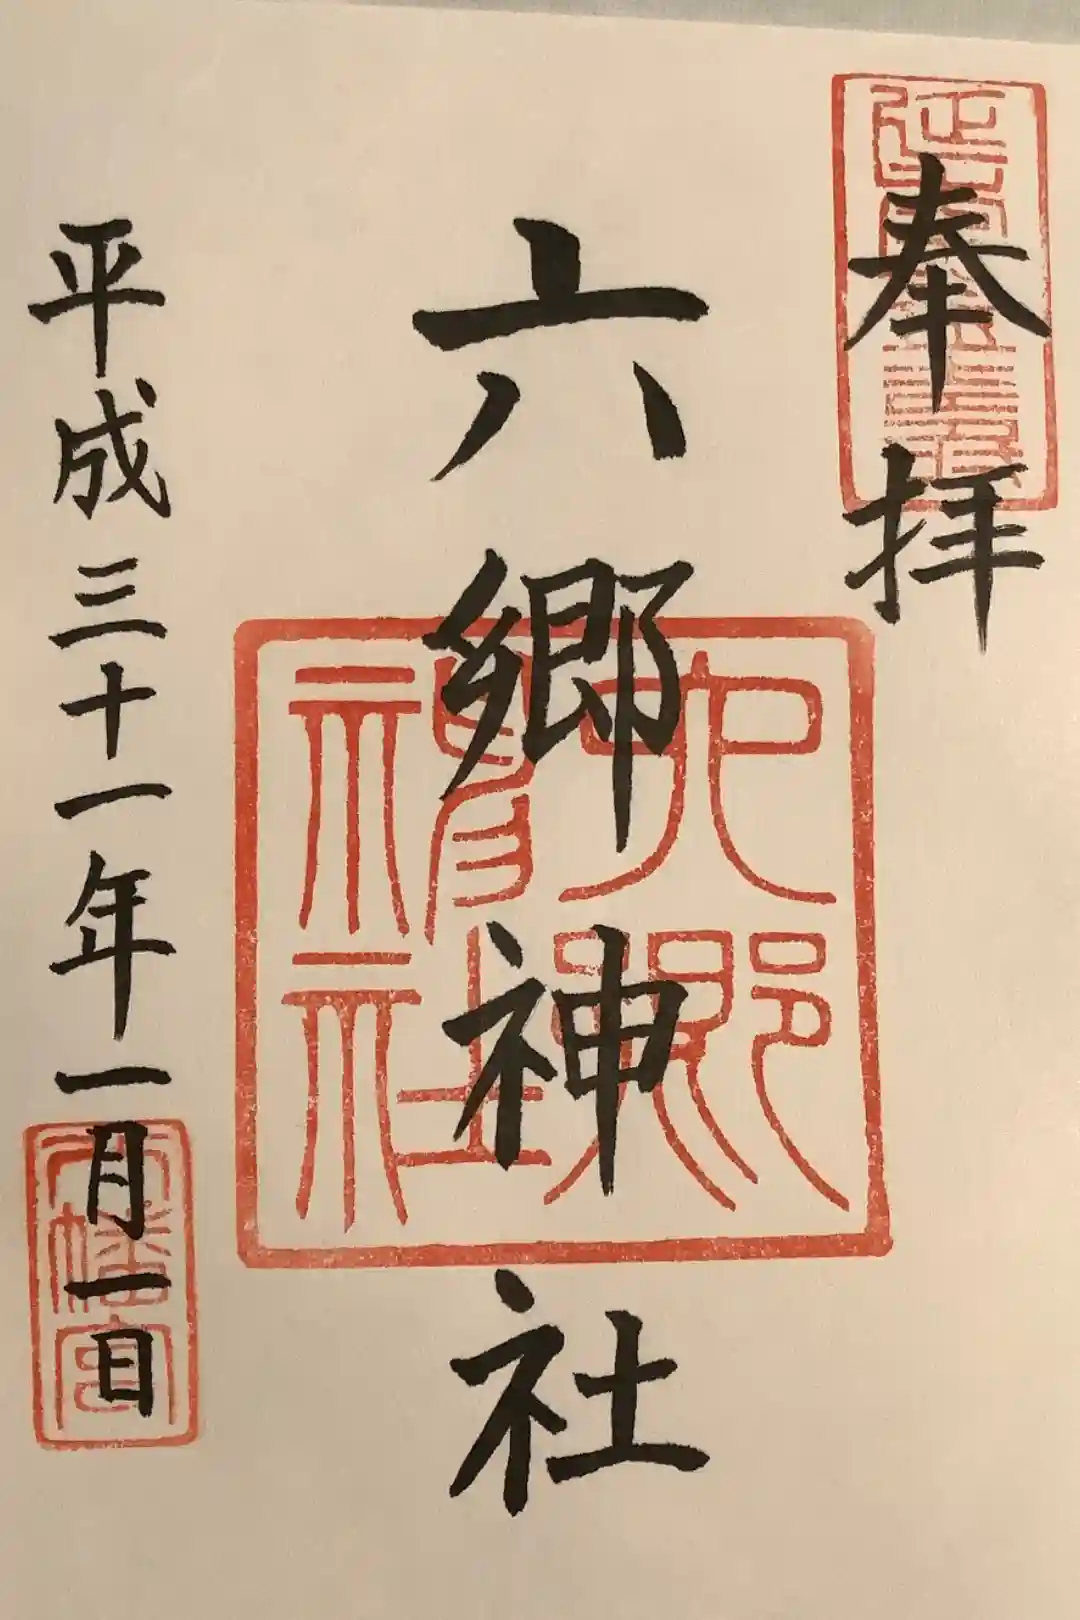 奉拝
六郷神社
六郷神社
平成三十一年一月一日
八幡宮